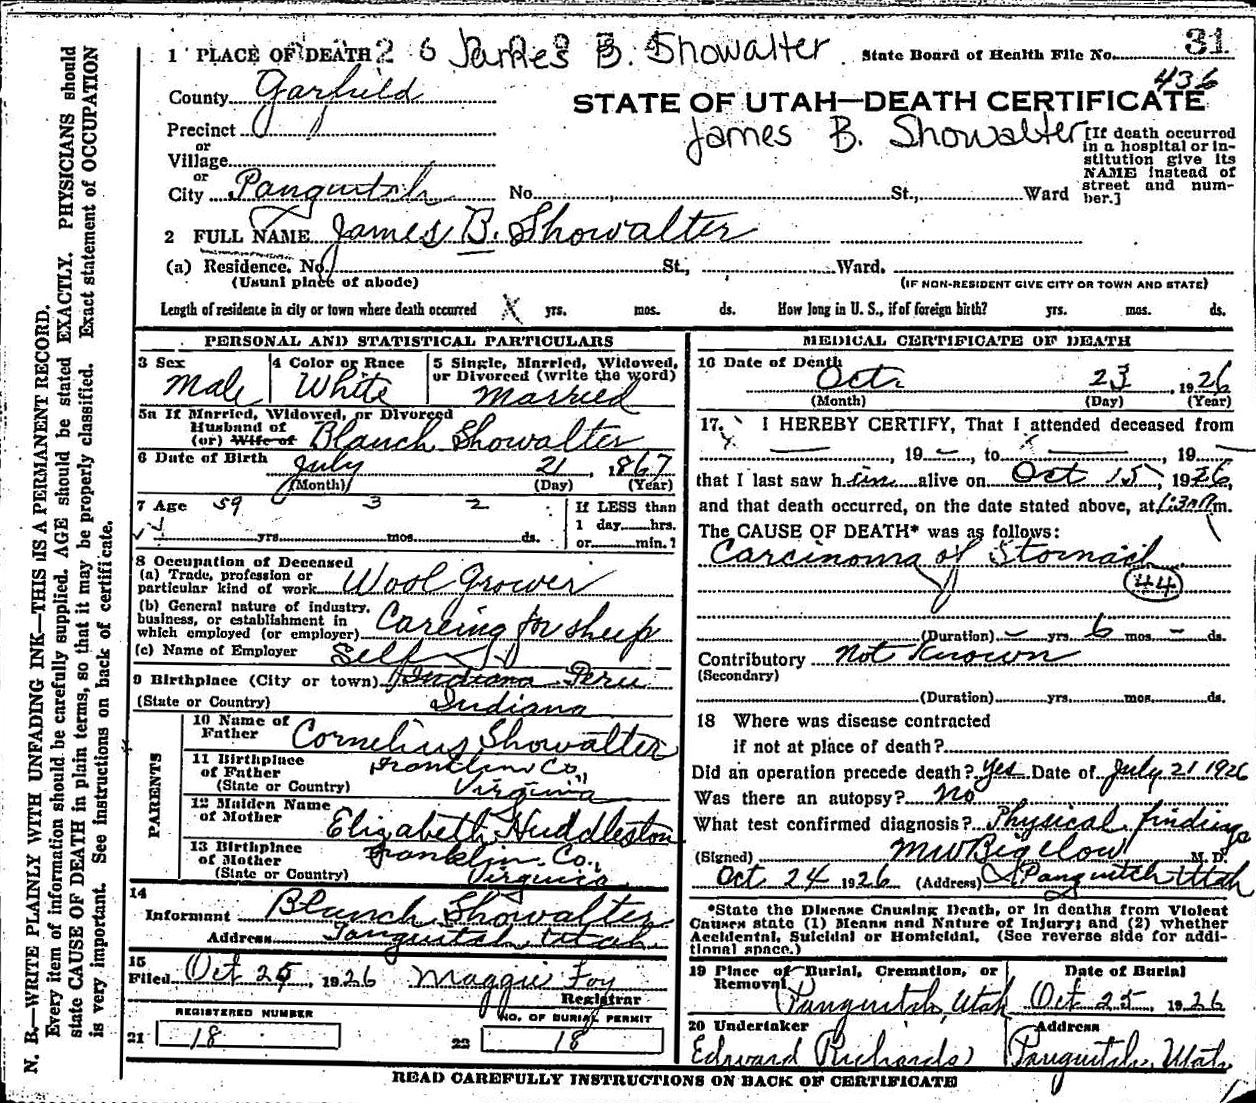 31
1 PLACE OF DEATH 2 6 James B. Showalter State Board of Health File No.
436
County Garfield
STATE OF UTAH—DEATH CERTIFICATE
James B. Showalter
Precinct
or
Village
or
City Panguitch No. St., Ward
[If death occurred
in a hospital or in-
stitution give its
NAME instead of
street and num-
ber.]
2 FULL NAME James B. Showalter
(a) Residence. No. St., Ward.
(Usual place of abode) (IF NON-RESIDENT GIVE CITY OR TOWN AND STATE)
Length of residence in city or town where death occurred X yrs. mos. ds. How long in U. S., if of foreign birth? yrs. mos. ds.
PERSONAL AND STATISTICAL PARTICULARS
3 Sex 4 Color or Race 5 Single, Married, Widowed,
or Divorced (write the word)
Male White Married
5a If Married, Widowed, or Divorced
Husband of
(or) Wife of Blanch Showalter
6 Date of Birth July 21, 1867
(Month) (Day) (Year)
7 Age 59 3 2 If LESS than
1 day hrs.
yrs. mos. ds. or min.?
8 Occupation of Deceased
(a) Trade, profession or
particular kind of work Wool Grower
(b) General nature of industry,
business, or establishment in
which employed (or employer) Careing for sheep
(c) Name of Employer Self
9 Birthplace (City or town) Indiana Peru
(State or Country) Indiana
PARENTS
10 Name of
Father Cornelius Showalter
11 Birthplace
of Father Franklin Co.,
(State or Country) Virginia
12 Maiden Name
of Mother Elizabeth Huddleston
13 Birthplace
of Mother Franklin Co.,
(State or Country) Virginia
14
Informant Blanch Showalter
Address Panguitch, Utah
15
Filed Oct 25, 1926 Maggie Foy
Registrar
REGISTERED NUMBER NO. OF BURIAL PERMIT
21 18 22 18
MEDICAL CERTIFICATE OF DEATH
16 Date of Death
Oct. 23, 1926
(Month) (Day) (Year)
17. I HEREBY CERTIFY, That I attended deceased from
, 19 , to , 19
that I last saw him alive on Oct 15, 1926,
and that death occurred, on the date stated above, at m.
The CAUSE OF DEATH* was as follows:
Carcinoma of Stomach
44
(Duration) – yrs. 6 mos. – ds.
Contributory Not Known
(Secondary)
(Duration) yrs. mos. ds.
18 Where was disease contracted
if not at place of death?
Did an operation precede death? Yes Date of July 21 1926
Was there an autopsy? No
What test confirmed diagnosis? Physical findings
(Signed) M W Bigelow M. D.
Oct 24 1926 (Address) Panguitch Utah
*State the Disease Causing Death, or in deaths from Violent
Causes state (1) Means and Nature of Injury; and (2) whether
Accidental, Suicidal or Homicidal. (See reverse side for addi-
tional space.)
19 Place of Burial, Cremation, or Date of Burial
Removal Panguitch, Utah Oct 25, 1926
20 Undertaker Address
Edward Richards Panguitch, Utah
READ CAREFULLY INSTRUCTIONS ON BACK OF CERTIFICATE
N. B.—WRITE PLAINLY WITH UNFADING INK—THIS IS A PERMANENT RECORD.
Every item of information should be carefully supplied. AGE should be stated EXACTLY. PHYSICIANS should
state CAUSE OF DEATH in plain terms, so that it may be properly classified. Exact statement of OCCUPATION
is very important. See instructions on back of certificate.